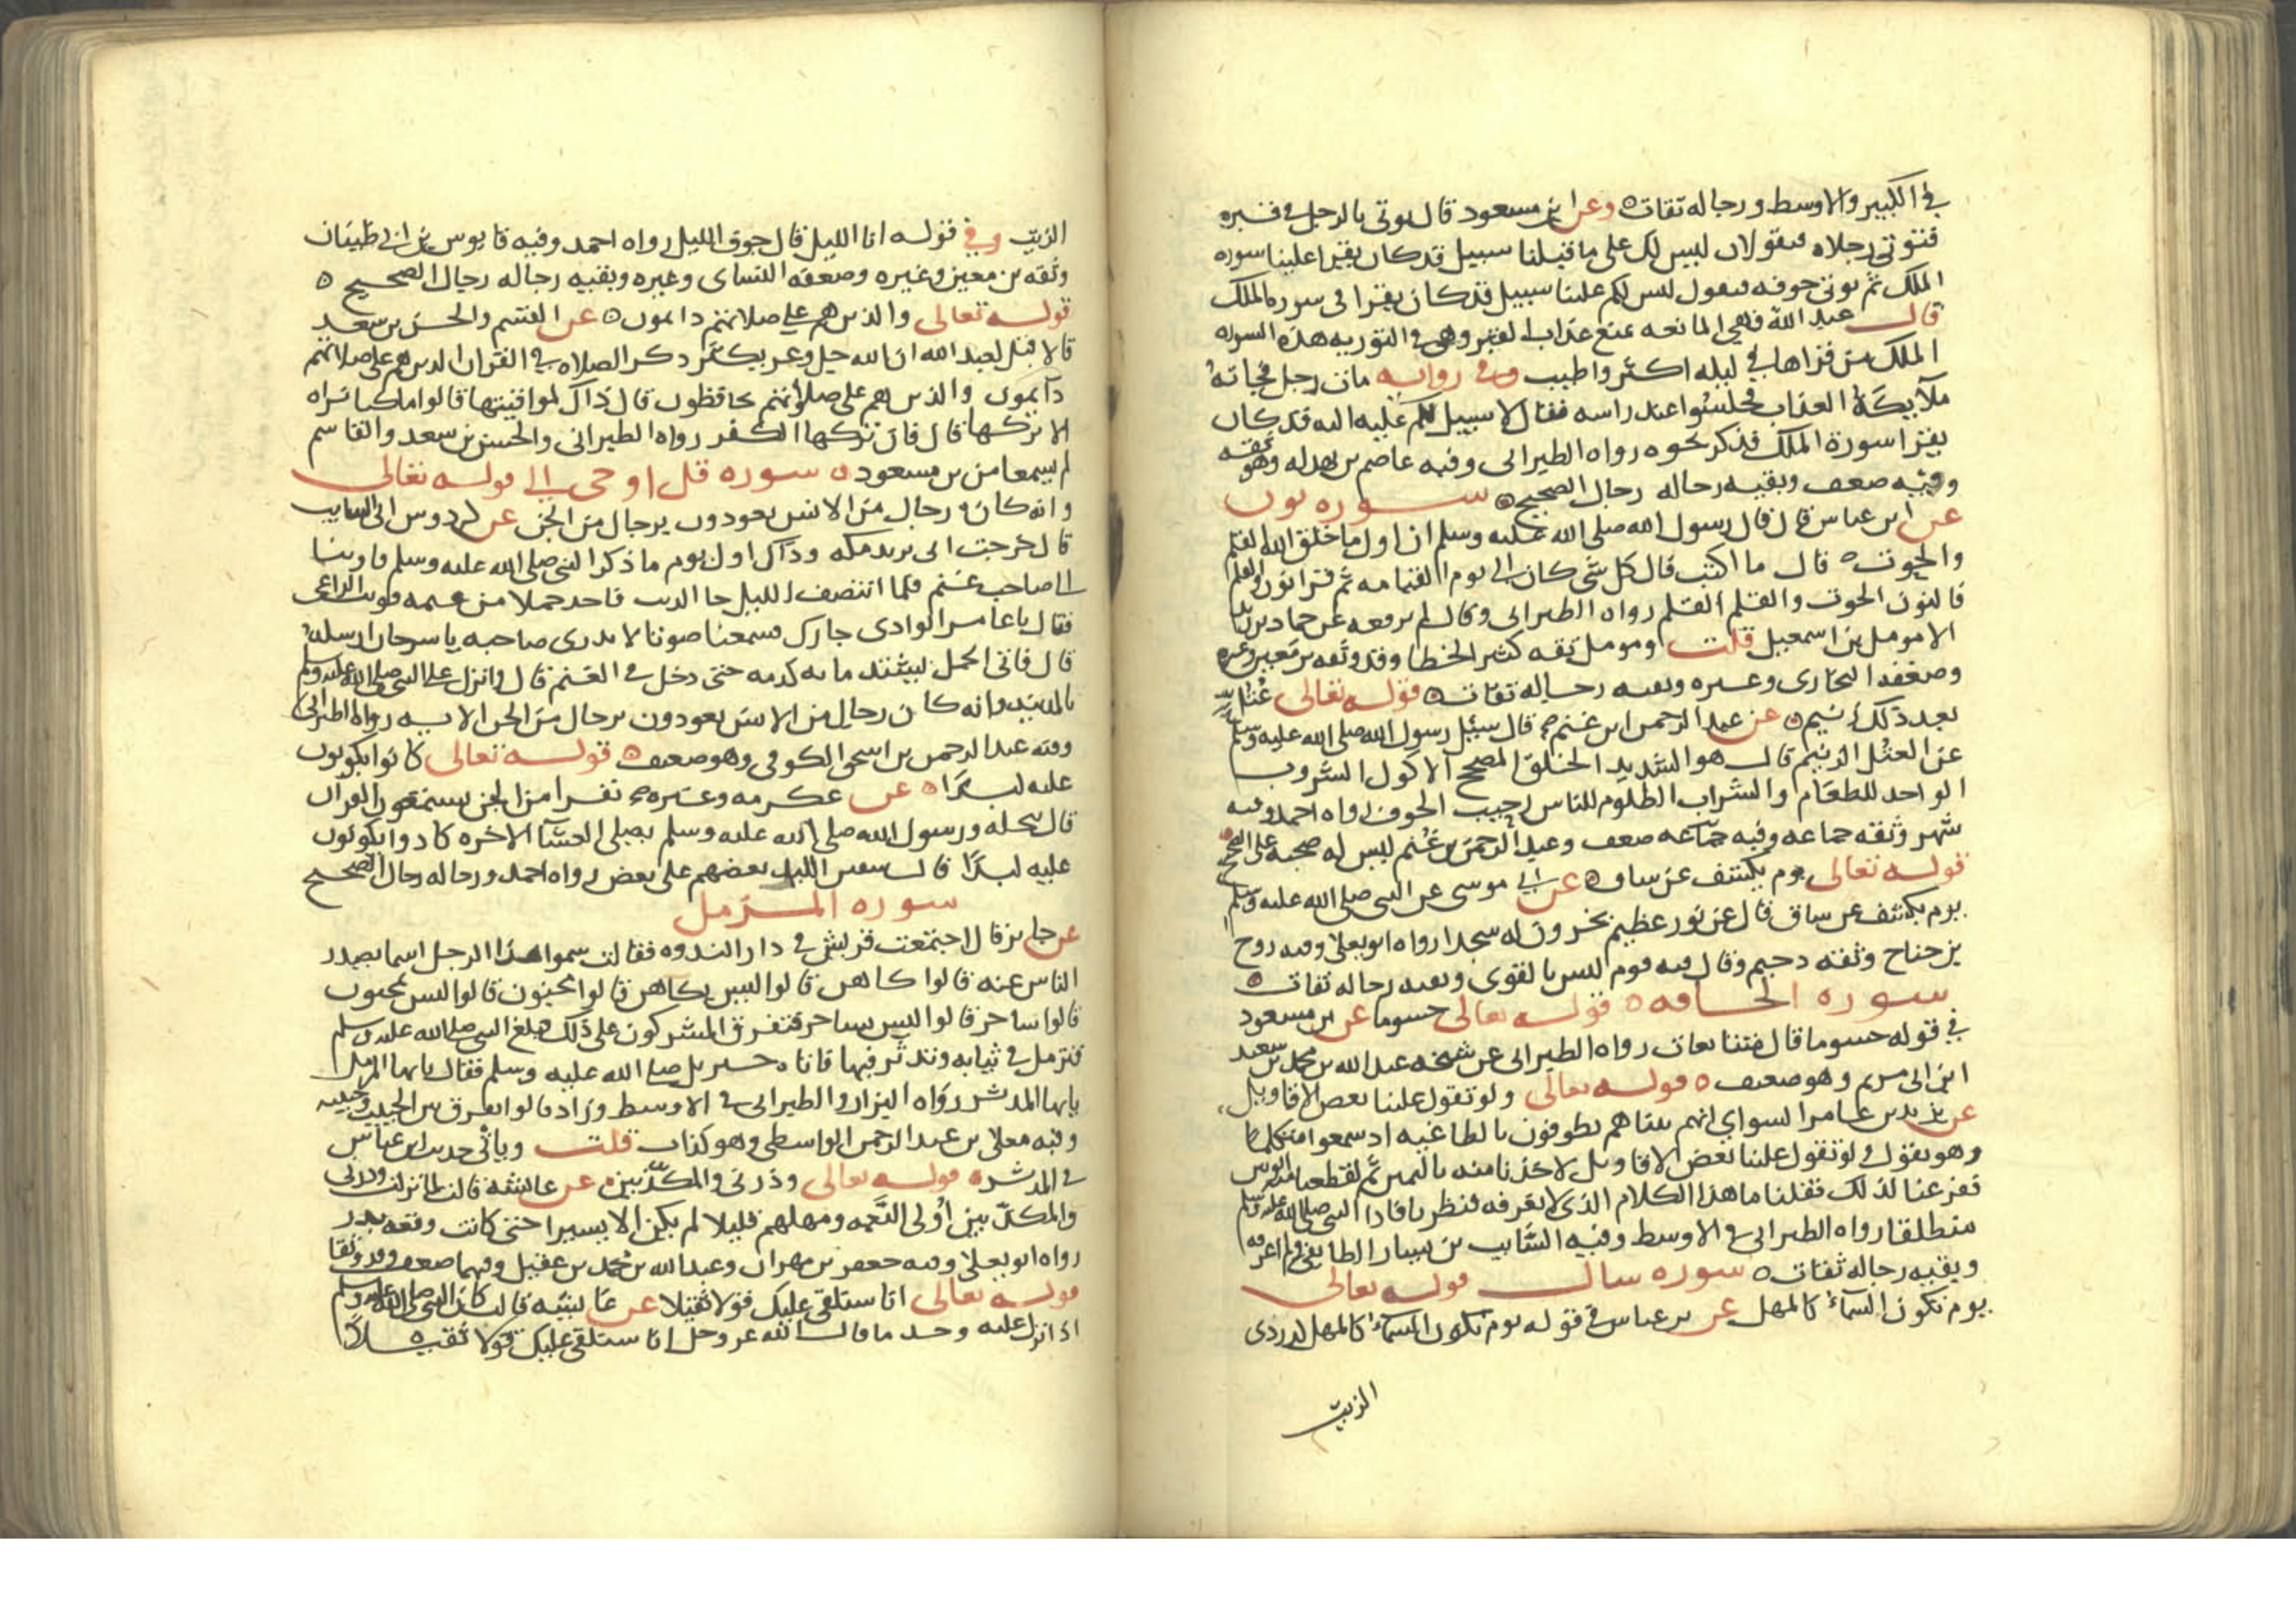 في الكبير والاوسط ورجاله ثقات وعن ابن مسعود قال يوتى بالرجل في قبره
فتوتى رجلاه فيقولان ليس لك على ما قبلنا سبيل قد كان يقرا علينا سوره
الملك ثم يوتى جوفه فيقول ليس لكم علينا سبيل قد كان يقرا في سوره الملك
قال عبد الله فهي المانعه تمنع عذاب القبر وهي في التوريه هذه السوره
الملك من قراها في ليله اكثر واطيب وفي روايه مات رجل فجاته
ملايكة العذاب فجلسوا عند راسه فقال لا سبيل لكم عليه انه قد كان
يقرا سورة الملك فذكر نحوه رواه الطبراني وفيه عاصم بن بهدله وهو ثقه
وفيه ضعف وبقيه رجاله رجال الصحيح سوره نون
عن ابن عباس قال قال رسول الله صلى الله عليه وسلم ان اول ما خلق الله القلم
والحوت قال ما اكتب قال كل شي كان الى يوم القيامه ثم قرا نون والقلم
فالنون الحوت والقلم القلم رواه الطبراني وقال لم يرفعه عن حماد بن زيد
الا مومل بن اسمعيل قلت ومومل ثقه كثير الخطا وقد وثقه بن معين وغيره
وضعفه البخاري وغيره وبقيه رجاله ثقات قوله تعالى عتل
بعد ذلك زنيم عن عبد الرحمن ابن غنم قال سيل رسول الله صلى الله عليه وسلم
عن العتل الزنيم قال هو الشديد الخلق المصحح الاكول الشروب
الواجد للطعام والشراب الظلوم للناس رحيب الجوف رواه احمد وفيه
شهر وثقه جماعه وفيه ضعف وعبد الرحمن بن غنم ليس له صحبه على الصحيح
قوله تعالى يوم يكشف عن ساق عن ابي موسى عن النبي صلى الله عليه وسلم
يوم يكشف عن ساق قال عن نور عظيم يخرون له سجدا رواه ابو يعلى وفيه روح
بن جناح وثقه دحيم وقال فيه قوم ليس بالقوي وبقيه رجاله ثقات
سوره الحاقه قوله تعالى حسوما عن بن مسعود
في قوله حسوما قال متتابعات رواه الطبراني عن شيخه عبد الله بن محمد بن سعيد
ابن ابي مريم وهو ضعيف قوله تعالى ولو تقول علينا بعض الاقاويل
عن يزيد بن عامر السواي انهم بيناهم يطوفون بالطاغيه اذ سمعوا متكلما
وهو يقول ولو تقول علينا بعض الاقاويل لاخذنا منه باليمين ثم لقطعنا منه الوتين
ففزعنا لذلك فقلنا ما هذا الكلام الذي لا نعرفه فنظرنا فاذا النبي صلى الله عليه وسلم
منطلقا رواه الطبراني في الاوسط وفيه السايب بن يسار الطايفي ولم اعرفه
وبقيه رجاله ثقات سوره سال قوله تعالى
يوم تكون السماء كالمهل عن بن عباس في قوله يوم تكون السماء كالمهل كدردي
الزيت
الزيت وفي قوله انا الليل قال جوف الليل رواه احمد وفيه قابوس بن ابي ظبيان
وثقه بن معين وغيره وضعفه النساي وغيره وبقيه رجاله رجال الصحيح
قوله تعالى والذين هم على صلاتهم دايمون عن القسم والحسن بن سعد
قالا قيل لعبد الله ان الله جل وعز يكثر ذكر الصلاه في القران الذين هم على صلاتهم
دايمون والذين هم على صلواتهم يحافظون قال ذاك لمواقيتها قالوا ما كنا نراه
الا تركها قال فان تركها الكفر رواه الطبراني والحسن بن سعد والقاسم
لم يسمعا من بن مسعود سوره قل اوحي الي قوله تعالى
وانه كان رجال من الانس يعوذون برجال من الجن عن كردوم ابن السايب
قال خرجت ابي يريد مكه وذاك اول يوم ما ذكر النبي صلى الله عليه وسلم فاوينا
الى صاحب غنم فلما انتصف الليل جا الذيب فاخذ حملا من غنمه فوثب الراعي
فقال يا عامر الوادي جارك فسمعنا صوتا لا ندري صاحبه يا سرحان ارسله
قال فاتى الحمل يشتد ما به كدمه حتى دخل في الغنم قال وانزل على النبي صلى الله عليه وسلم
بالمدينه وانه كان رجال من الانس يعوذون برجال من الجن الايه رواه الطبراني
وفيه عبد الرحمن بن اسحق الكوفي وهو ضعيف قوله تعالى كادوا يكونون
عليه لبدا عن عكرمه وغيره نفرا من الجن يستمعون القران
قال بنخله ورسول الله صلى الله عليه وسلم يصلي العشا الاخره كادوا يكونون
عليه لبدا قال سفين اللبد بعضهم على بعض رواه احمد ورجاله رجال الصحيح
سوره المزمل
عن جابر قال اجتمعت قريش في دار الندوه فقالت سموا هذا الرجل اسما يصدر
الناس عنه قالوا كاهن قالوا ليس بكاهن قالوا مجنون قالوا ليس بمجنون
قالوا ساحر قالوا ليس بساحر فتفرق المشركون على ذلك فبلغ النبي صلى الله عليه وسلم
فتزمل في ثيابه وتدثر فيها فاتاه جبريل صلى الله عليه وسلم فقال يايها المزمل
يايها المدثر رواه البزار والطبراني في الاوسط وزاد قالوا يفرق بين الحبيب وحبيبه
وفيه معلى بن عبد الرحمن الواسطي وهو كذاب قلت وياتي حديث ابن عباس
في المدثر قوله تعالى وذرني والمكذبين عن عايشه قالت لما نزلت وذرني
والمكذبين اولي النعمه ومهلهم قليلا لم يكن الا يسيرا حتى كانت وقعه بدر
رواه ابو يعلى وفيه جعفر بن مهران وعبد الله بن محمد بن عقيل وفيهما ضعف وقد وثقا
قوله تعالى انا سنلقي عليك قولا ثقيلا عن عايشه قالت كان النبي صلى الله عليه وسلم
اذا نزل عليه وجد ما قال الله عز وجل انا سنلقي عليك قولا ثقيلا